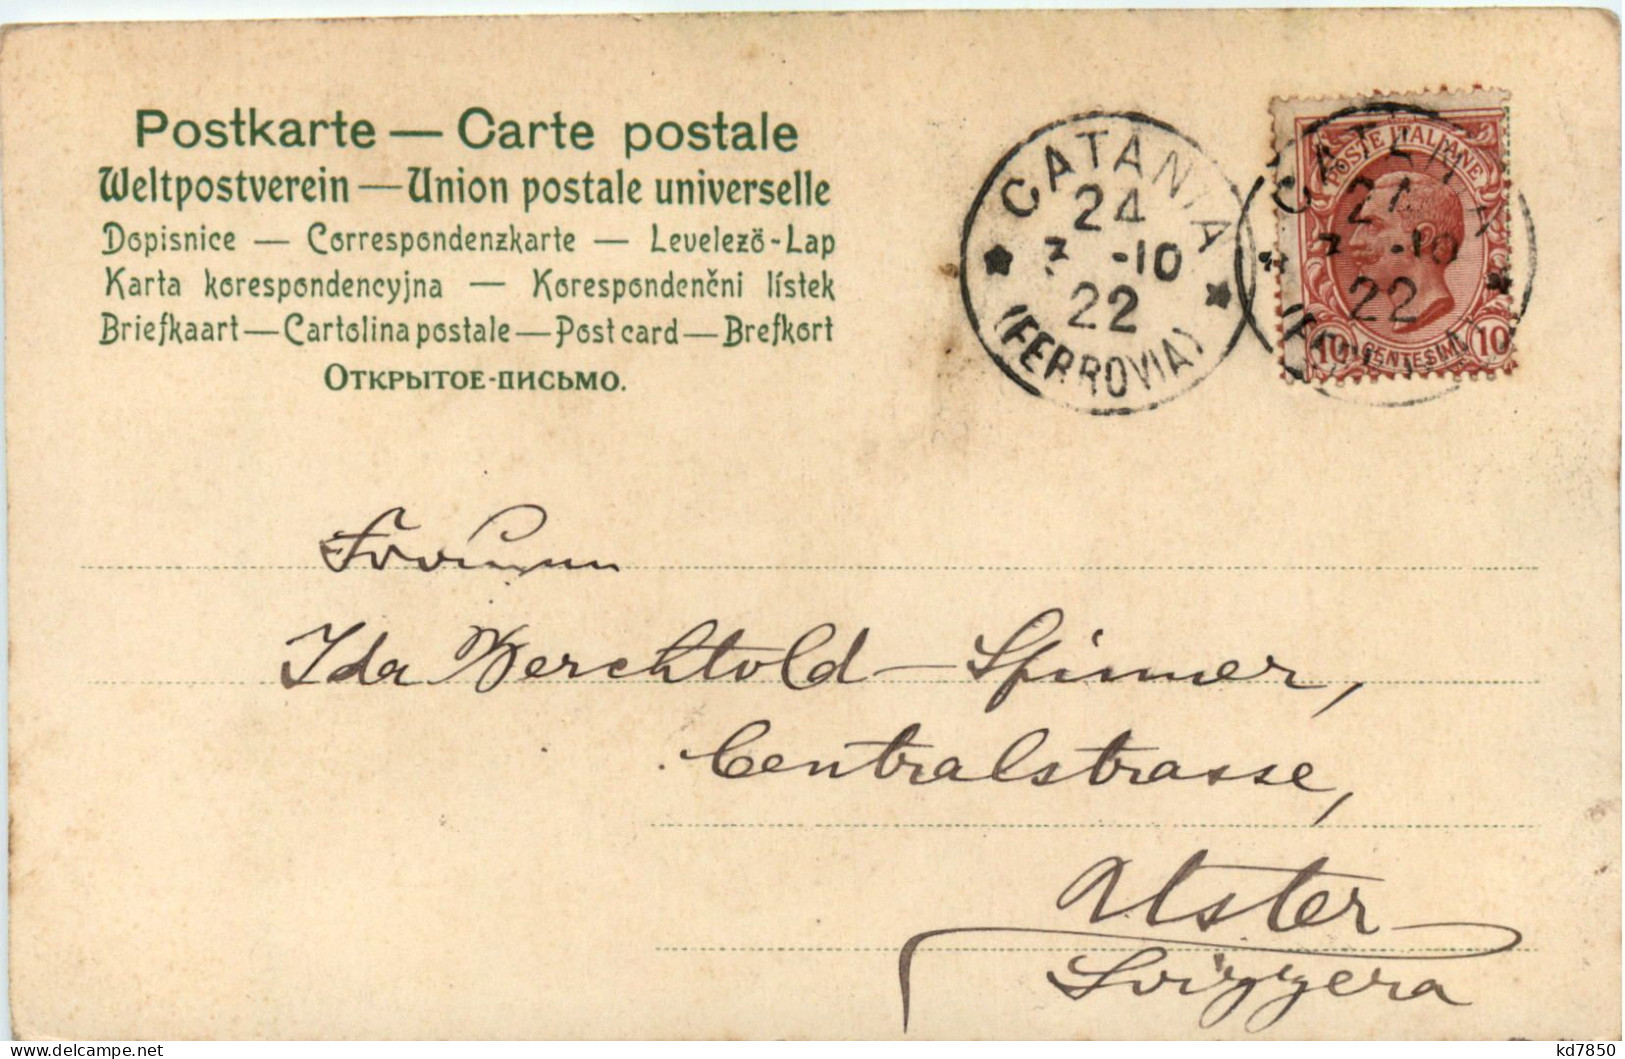 Postkarte — Carte postale
Weltpostverein — Union postale universelle
Dopisnice — Correspondenzkarte — Levelező-Lap
Karta korespondencyjna — Korespondenčni lístek
Briefkaart — Cartolina postale — Post card — Brefkort
Открытое-письмо.
CATANIA
24
3 -10
22
(FERROVIA)
POSTE ITALIANE
24
3 -10
22
10 CENTESIMI 10
Ida Berchtold-Spinner,
Centralstrasse,
Uster
Svizzera
kd7850